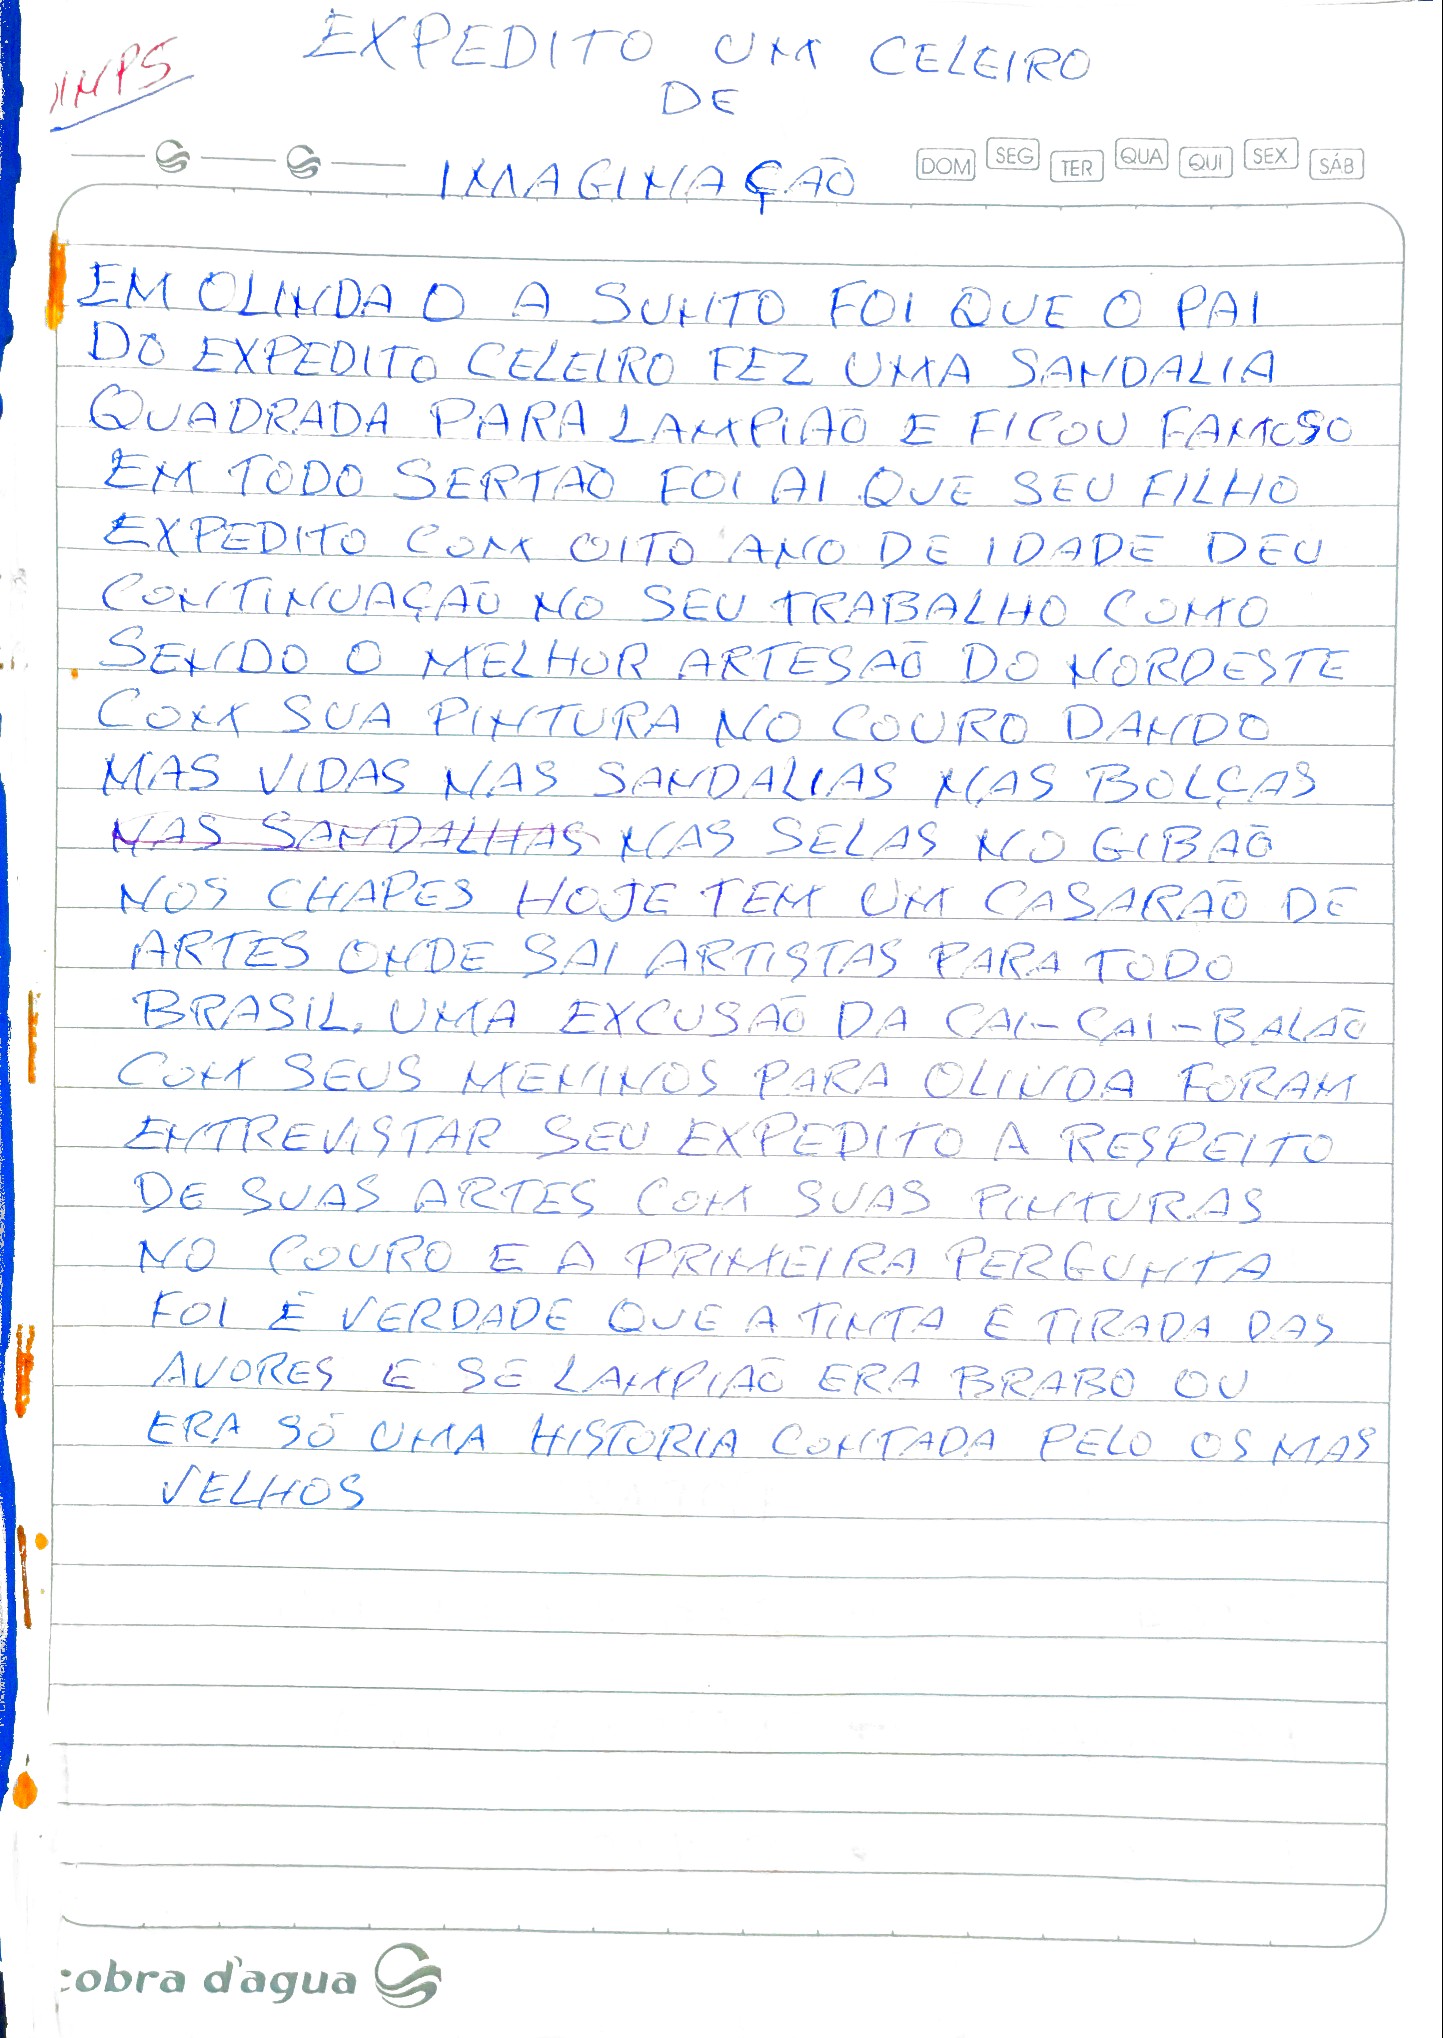 EXPEDITO UM CELEIRO
DE
IMAGINAÇÃO
DOM SEG TER QUA QUI SEX SÁB
EM OLINDA O A SUNTO FOI QUE O PAI
DO EXPEDITO CELEIRO FEZ UMA SANDALIA
QUADRADA PARA LAMPIÃO E FICOU FAMOSO
EM TODO SERTÃO FOI AI QUE SEU FILHO
EXPEDITO COM OITO ANO DE IDADE DEU
CONTINUAÇÃO NO SEU TRABALHO COMO
SENDO O MELHOR ARTESÃO DO NORDESTE
COM SUA PINTURA NO COURO DANDO
MAS VIDAS NAS SANDALIAS NAS BOLÇAS
NAS SANDALHAS NAS SELAS NO GIBÃO
NOS CHAPES HOJE TEM UM CASARÃO DE
ARTES ONDE SAI ARTISTAS PARA TODO
BRASIL. UMA EXCUSÃO DA CAI-ÇAI-BALÃO
COM SEUS MENINOS PARA OLINDA FORAM
ENTREVISTAR SEU EXPEDITO A RESPEITO
DE SUAS ARTES COM SUAS PINTURAS
NO COURO E A PRIMEIRA PERGUNTA
FOI É VERDADE QUE A TINTA E TIRADA DAS
AVORES E SE LAMPIÃO ERA BRABO OU
ERA SÓ UMA HISTORIA CONTADA PELO OS MAS
VELHOS
cobra d'agua